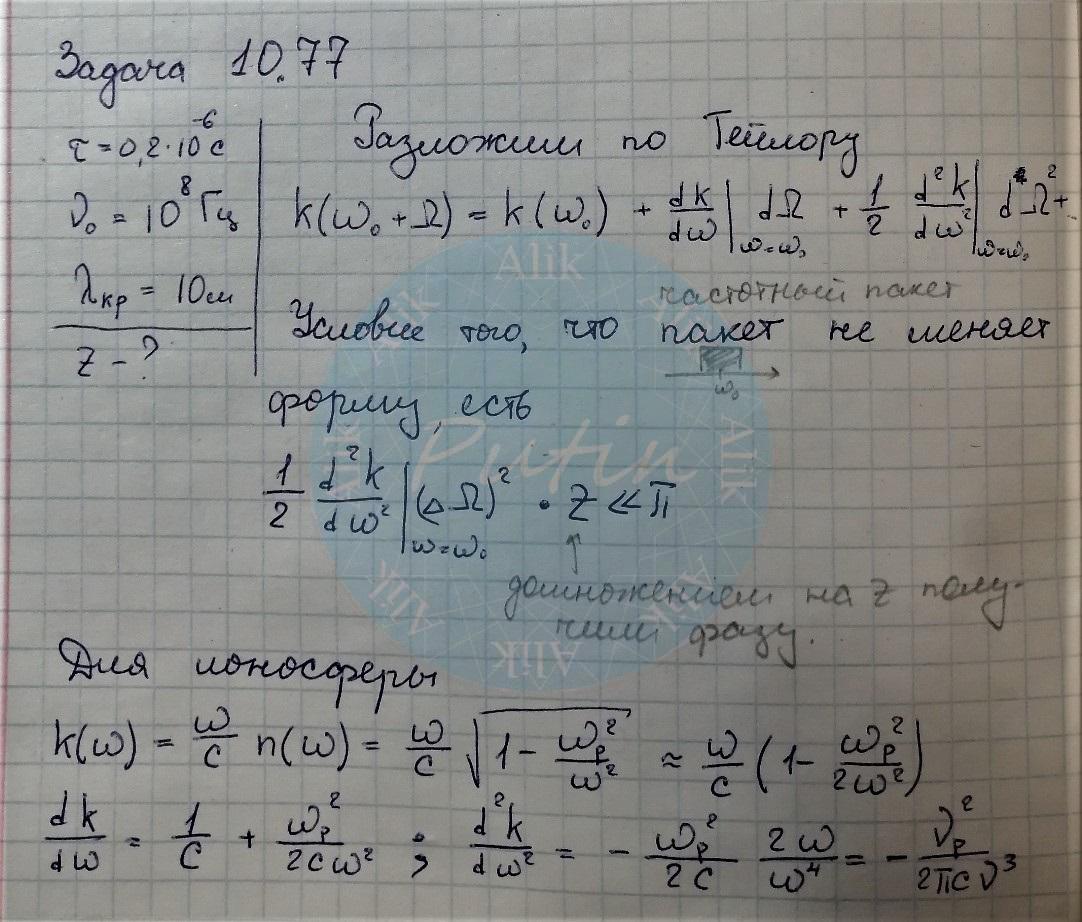 Задача 10.77
τ = 0,2·10⁻⁶ с
ν₀ = 10⁸ Гц
λкр = 10 м
z - ?
Разложим по Тейлору
k(ω₀ + Ω) = k(ω₀) + dk/dω |ω=ω₀ dΩ + 1/2 d²k/dω² |ω=ω₀ dΩ² + ..
частотный пакет
Условие того, что пакет не меняет
ω₀
форму, есть
1/2 d²k/dω² |ω=ω₀ (ΔΩ)² · z ≪ π
домножением на z полу-
чили фазу.
Для ионосферы
k(ω) = ω/c n(ω) = ω/c √(1 - ωp²/ω²) ≈ ω/c (1 - ωp²/2ω²)
dk/dω = 1/c + ωp²/2cω² ; d²k/dω² = - ωp²/2c 2ω/ω⁴ = - νp²/2πcν³
Alik
Alik
Alik
Alik
Alik
Alik
Alik
Alik
Putin